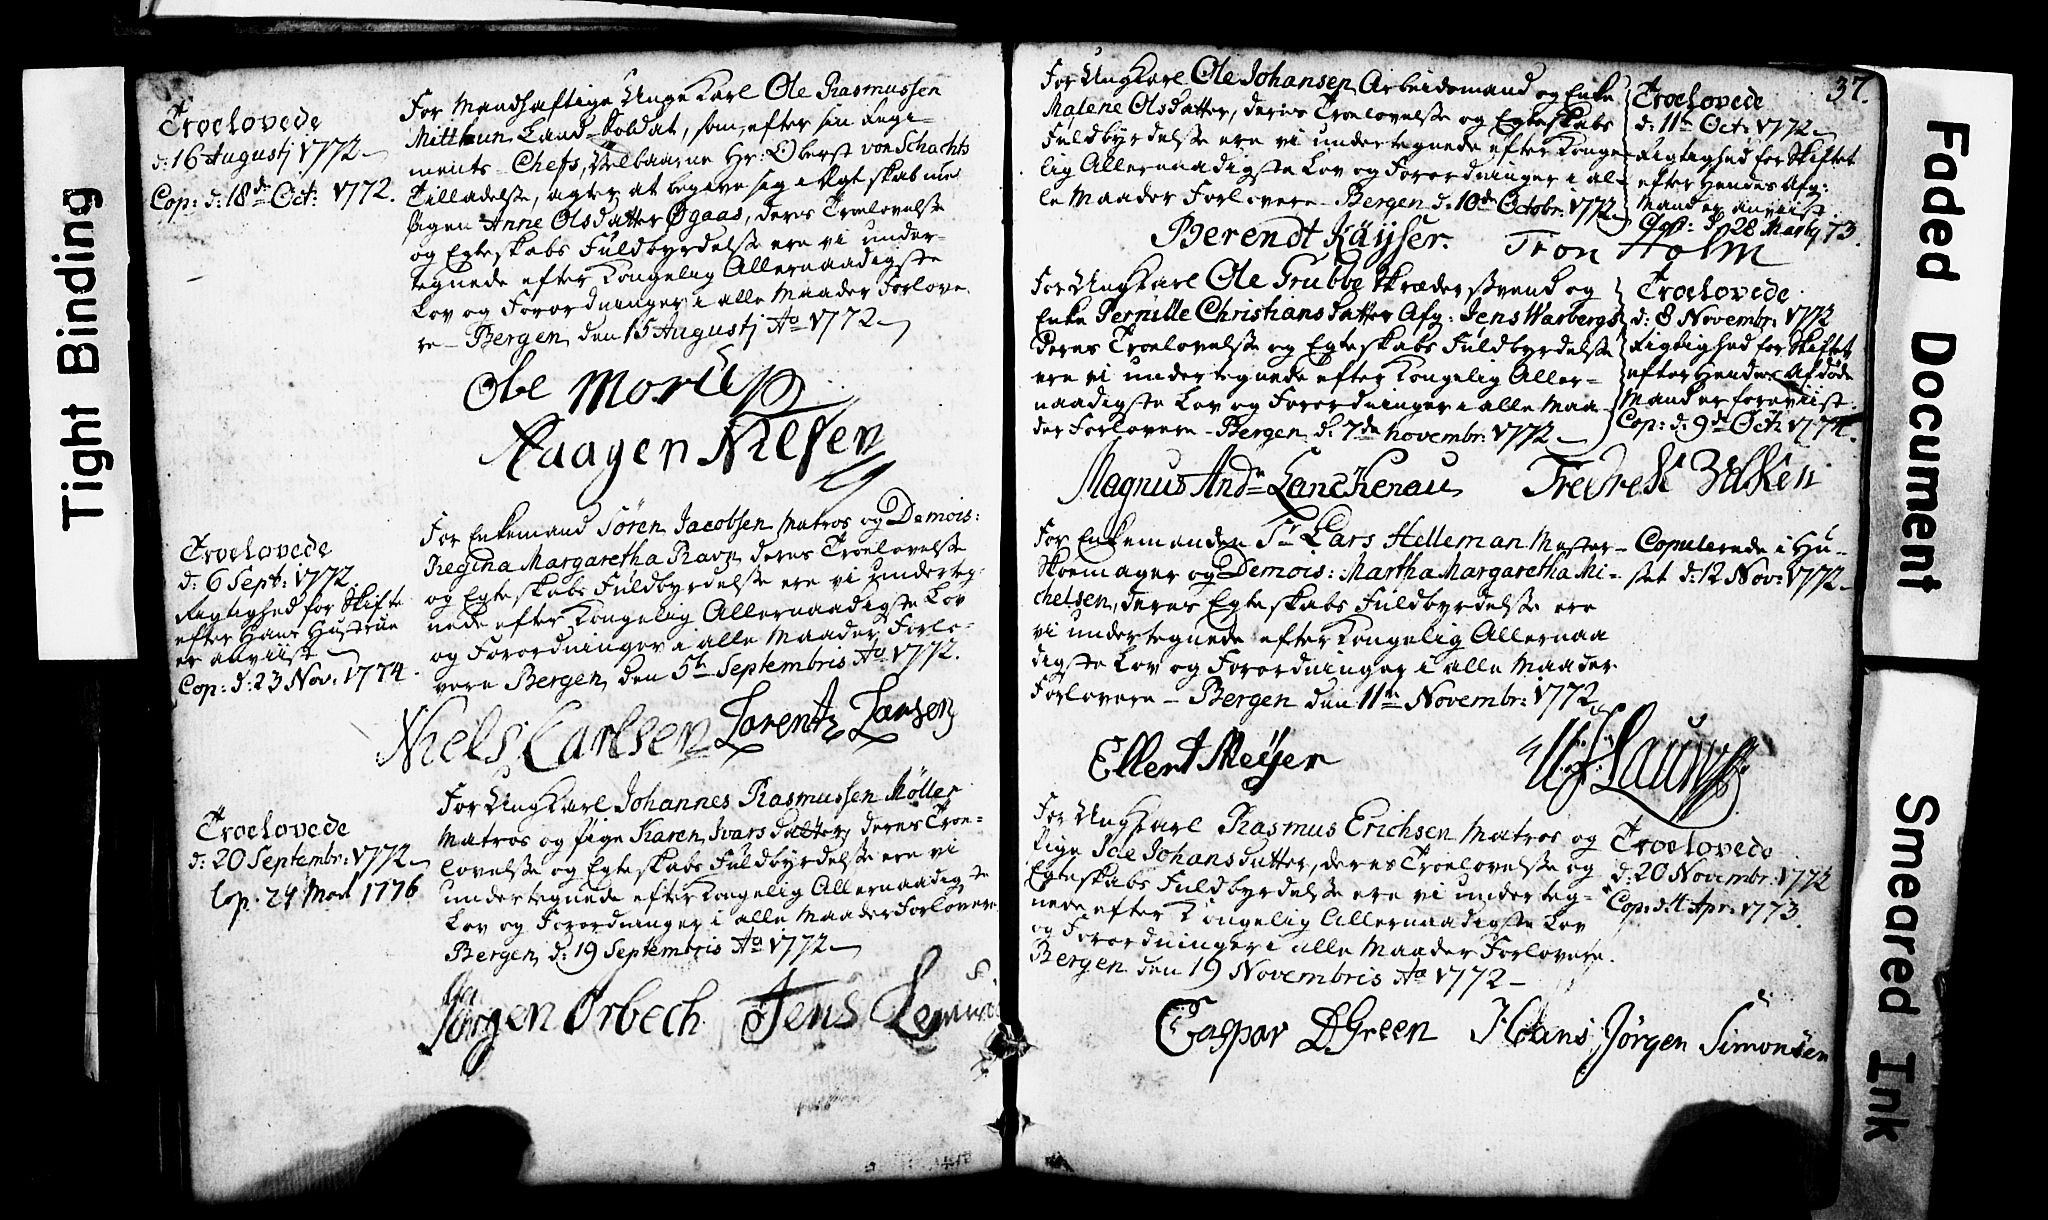 Tight Binding
Troelovede
d: 16 Augustj 1772
Cop: d: 18de Oct: 1772.
For Mandhaftige Unge Karl Ole Rasmussen
Mitthun Land-Soldat, som, efter sin Regi-
ments-Chefs, Velbaarne Hr: Oberst von Schachts
Tilladelse, agter at begive sig i Egteskab med
Pigen Anne Olsdatter Øgaas, deres Troelovelse
og Egteskabs Fuldbyrdelse ere vi under-
tegnede efter Kongelig Allernaadigste
Lov og Forordninger i alle Maader Forlove-
re - Bergen den 15 Augustj Ao 1772
Obe
Haagen Nilsen
Troelovede
d: 6 Sept: 1772
Rigtighed for Skifte
efter Hans Hustrue
er anviist
Cop: d: 23 Nov: 1774
For Enkemand Sören Jacobsen Matros og Demois:
Regina Margaretha Ravn deres Troelovelse
og Egteskabs Fuldbyrdelse ere vi underteg-
nede efter Kongelig Allernaadigste Lov
og Forordninger i alle Maader Forlo-
vere Bergen den 5te Septembris Ao 1772.
Niels Carlsen Lorentz Larsen
Troelovede
d: 20 Septembr: 1772
Cop. 24 1776
For Ung Karl Johannes Rasmussen Möller
Matros og Pige Karen Ivarsdatter, deres Troe-
lovelse og Egteskabs Fuldbyrdelse ere vi
undertegnede efter Kongelig Allernaadigste
Lov og Forordninger i alle Maader Forlovere
Bergen d: 19 Septembris Ao 1772
Jörgen Örbech Jens
37.
For Ung Karl Ole Johansen Arbeidsmand og Enke
Malene Olsdatter, deres Troelovelse og Egteskabs
Fuldbyrdelse ere vi undertegnede efter Konge-
lig Allernaadigste Lov og Forordninger i al-
le Maader Forlovere - Bergen d. 10de Octobr: 1772
Troelovede
d: 11te Oct: 1772
Rigtighed for Skiftet
efter Hendes Afg:
Mand er anviist.
Cop: d: 28 Martj 73.
Berendt Käÿser. Tron Holm
For Ung Karl Ole Grubbe Skrædersvend og
Enke Pernille Christiansdatter Afg: Jens Warbergs
deres Troelovelse og Egteskabs Fuldbyrdelse
ere vi undertegnede efter Kongelig Aller-
naadigste Lov og Forordninger i alle Maa-
der Forlovere - Bergen d. 7de Novembr: 1772
Troelovede
d: 8 Novembr: 1772
Rigtighed for Skiftet
efter Hendes Afdøde
Mand er foreviist.
Cop: d: 9de Octr: 1774.
Magnus Andr Lanckenau Fredrek
For Enkemanden Sr Lars Helleman Mester-
Skoemager og Demois: Martha Margaretha Mi-
chelsen, deres Egteskabs Fuldbyrdelse ere
vi undertegnede efter Kongelig Allernaa
digste Lov og Forordninger i alle Maader
Forlovere - Bergen den 11te Novembr: 1772
Copulerede i Hu-
set d: 12 Nov: 1772
Ellert Meÿer
For Ung Karl Rasmus Erichsen Matros og
Pige Johansdatter, deres Troelovelse og
Egteskabs Fuldbyrdelse ere vi underteg-
nede efter Kongelig Allernaadigste Lov
og Forordninger i alle Maader Forlovere.
Bergen den 19 Novembris Ao 1772
Troelovede
d: 20 Novembr: 1772
Cop: d: Apr: 1773.
Caspar D Green Hans Jörgen Simonsen
Faded Document
Smeared Ink